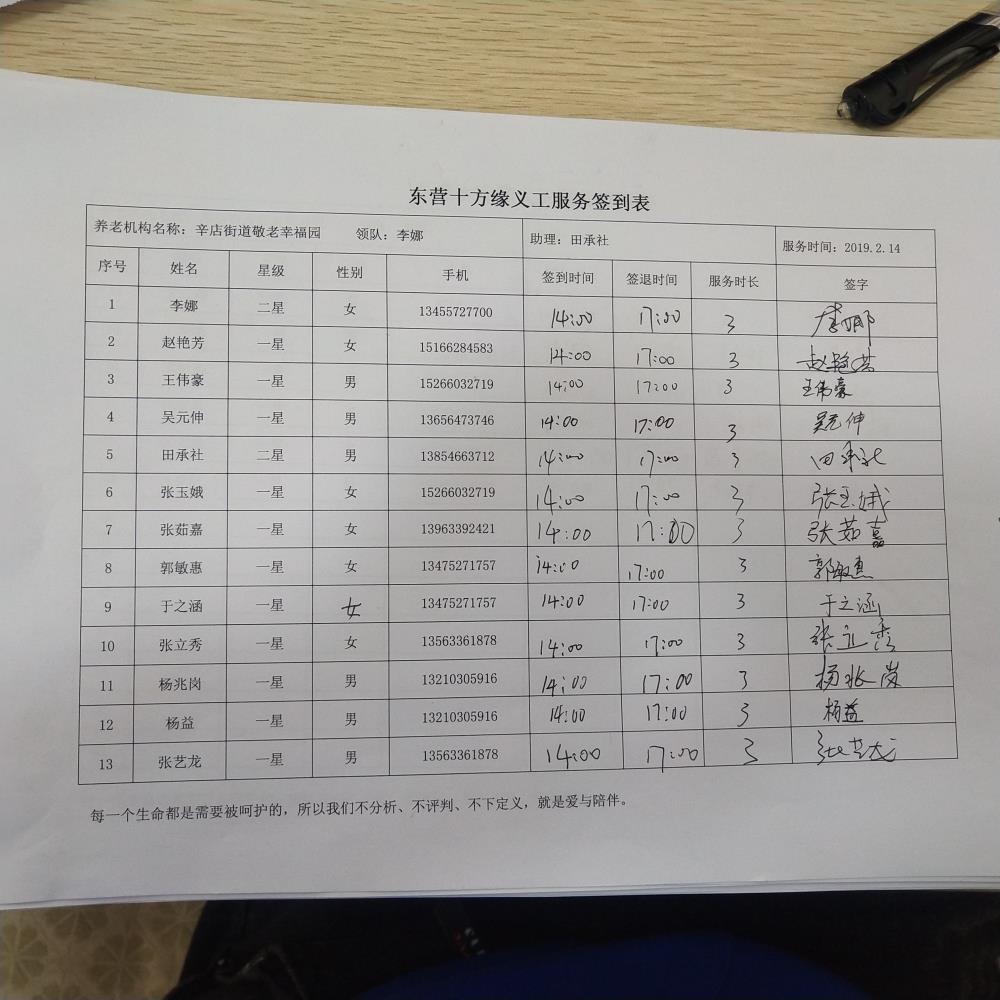 东营十方缘义工服务签到表
养老机构名称：辛店街道敬老幸福园 领队：李娜 助理：田承社 服务时间：2019.2.14
序号 姓名 星级 性别 手机 签到时间 签退时间 服务时长 签字
1 李娜 二星 女 13455727700 14:00 17:00 3 李娜
2 赵艳芳 一星 女 15166284583 14:00 17:00 3 赵艳芳
3 王伟豪 一星 男 15266032719 14:00 17:00 3 王伟豪
4 吴元伸 一星 男 13656473746 14:00 17:00 3 吴元伸
5 田承社 二星 男 13854663712 14:00 17:00 3 田承社
6 张玉娥 一星 女 15266032719 14:00 17:00 3 张玉娥
7 张茹嘉 一星 女 13963392421 14:00 17:00 3 张茹嘉
8 郭敏惠 一星 女 13475271757 14:00 17:00 3 郭敏惠
9 于之涵 一星 女 13475271757 14:00 17:00 3 于之涵
10 张立秀 一星 女 13563361878 14:00 17:00 3 张立秀
11 杨兆岗 一星 男 13210305916 14:00 17:00 3 杨兆岗
12 杨益 一星 男 13210305916 14:00 17:00 3 杨益
13 张艺龙 一星 男 13563361878 14:00 17:00 3 张艺龙
每一个生命都是需要被呵护的，所以我们不分析、不评判、不下定义，就是爱与陪伴。